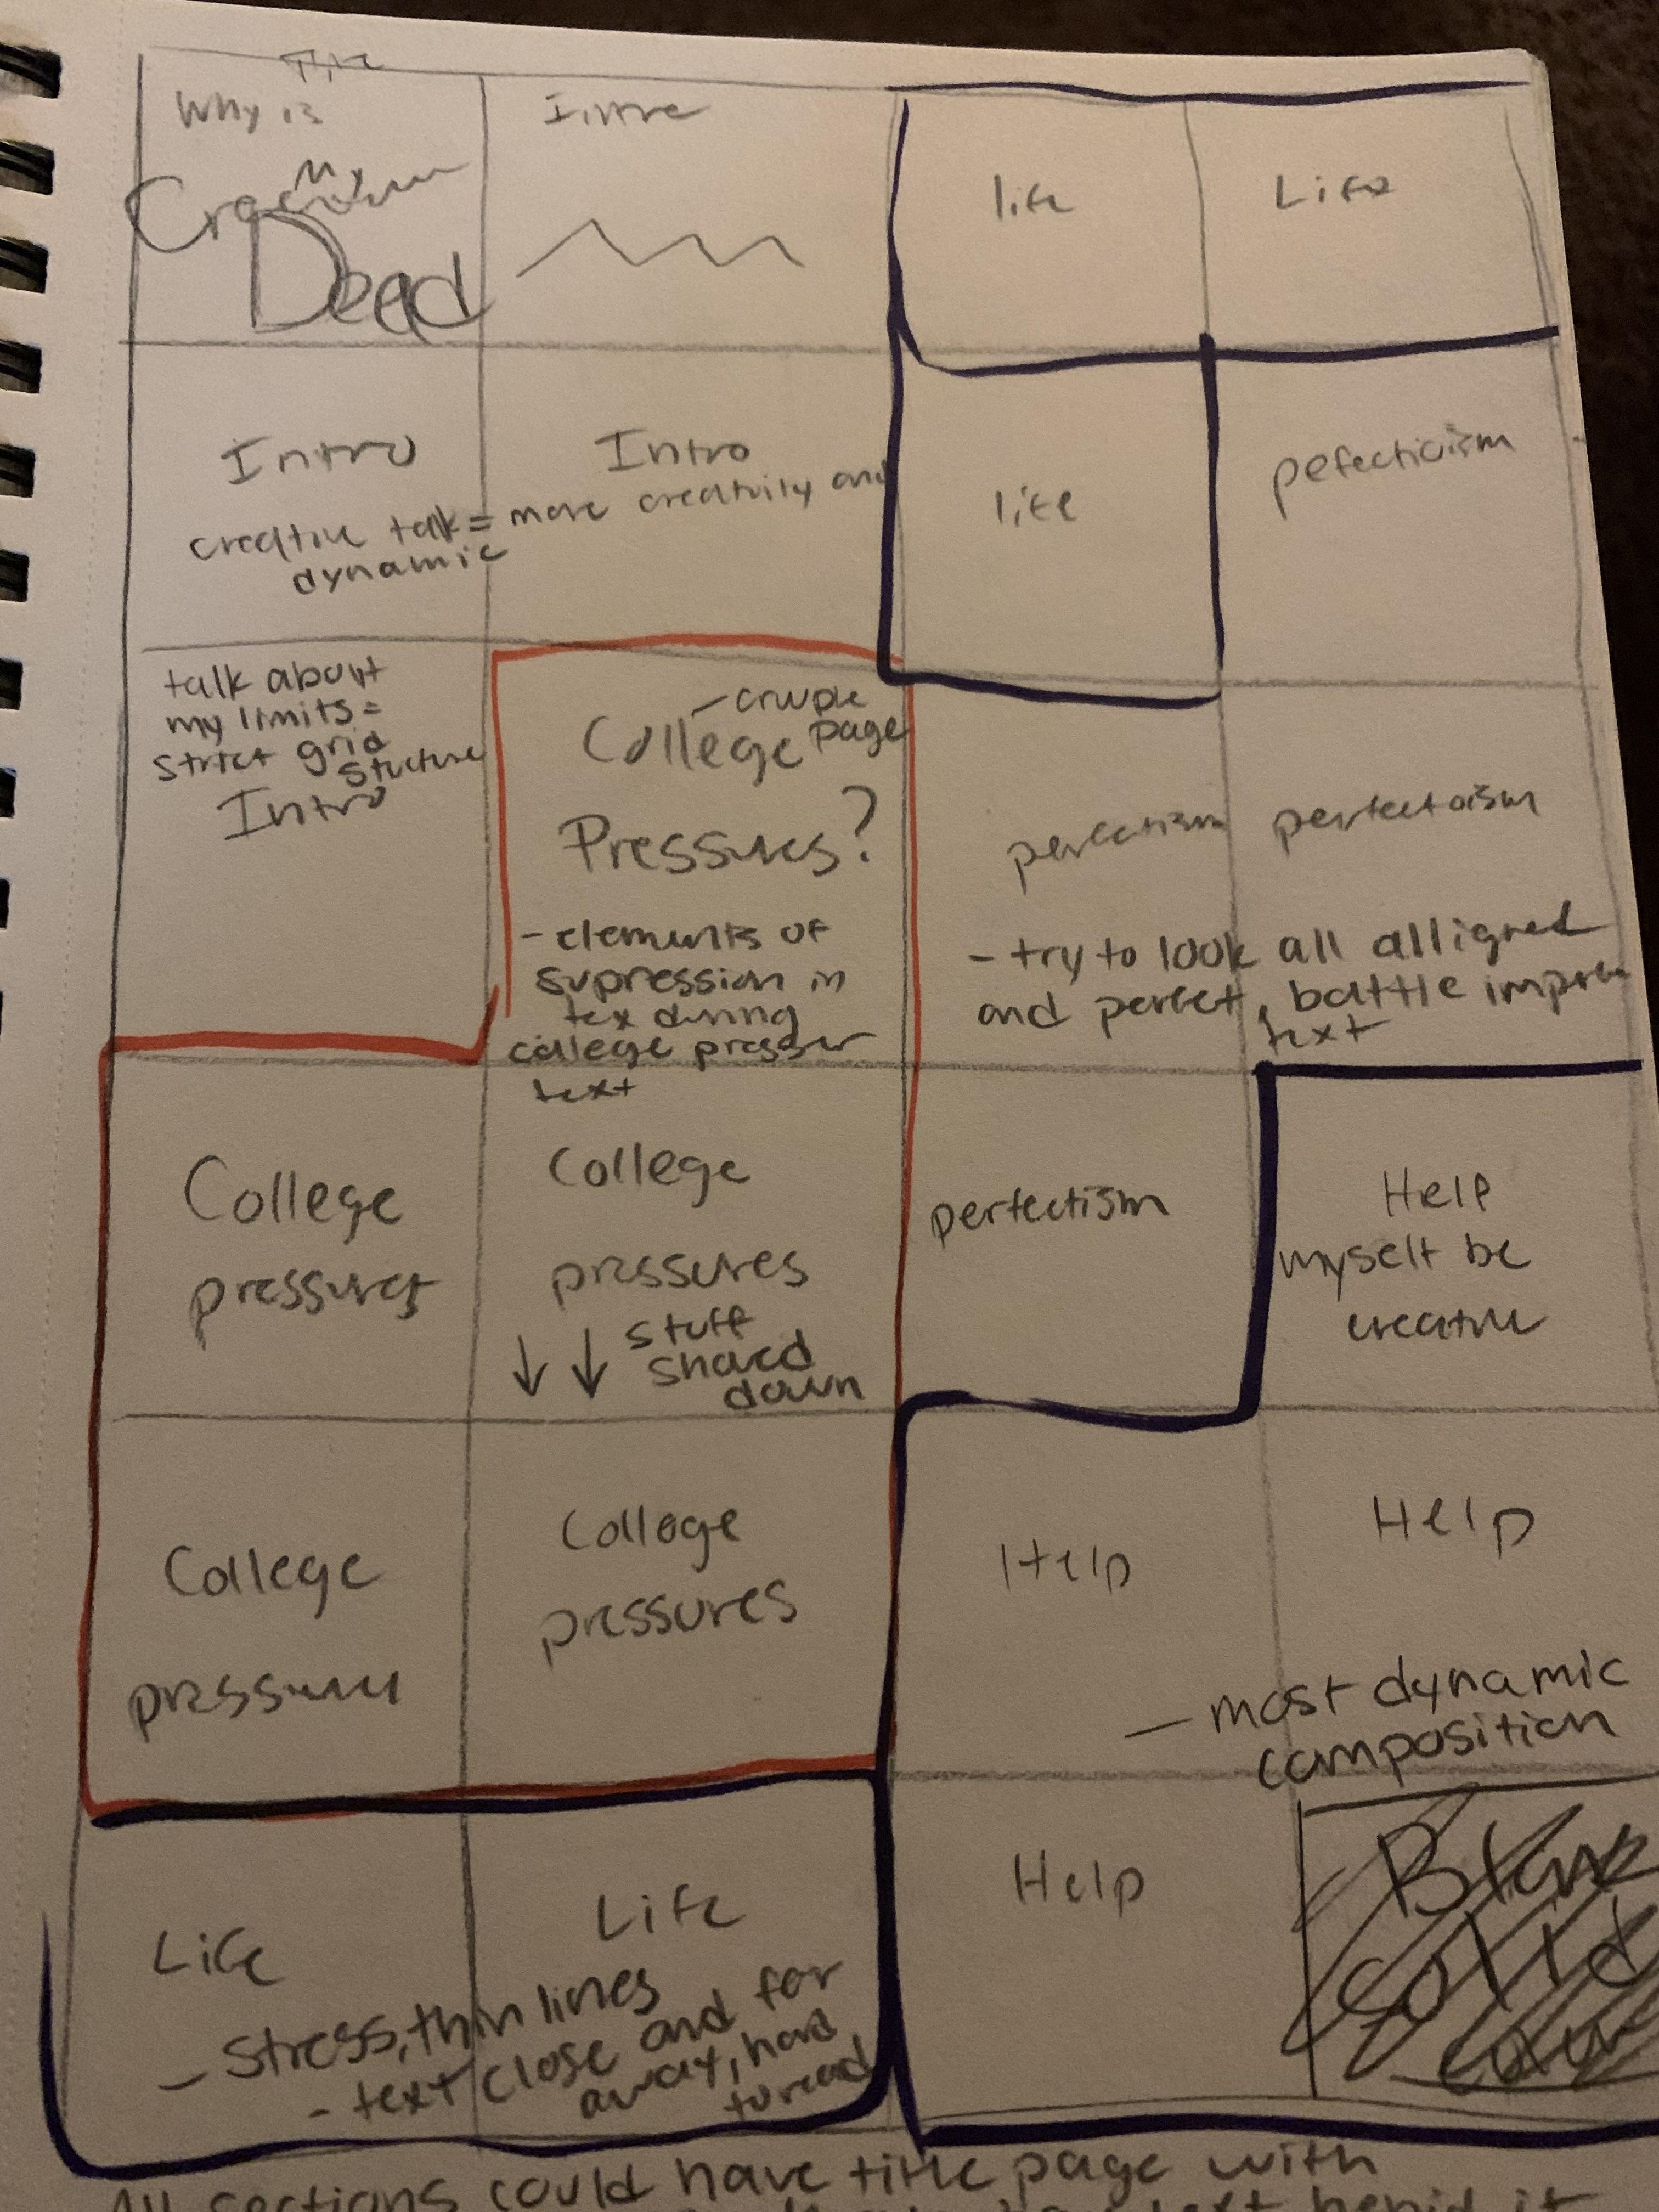 Why is
My
Dead
Intro
life
Life
Intro
Intro
creative talk = more creativity and
dynamic
life
pefecticism
talk about
my limits =
strict grid
stucture
Intro
College
page
Pressures?
- elements of
supression in
tex during
college presser
text
perfectism
perfectoism
- try to look all alligned
and perfect, battle
text
College
pressures
College
pressures
↓ ↓ stuff
down
perfectism
Help
myself be
creative
College
pressures
College
pressures
Help
Help
- most dynamic
composition
Life
Life
- stress, thin lines
- text close and far
away, hard
to read
Help
Solid
All sections could have title page with
text
it